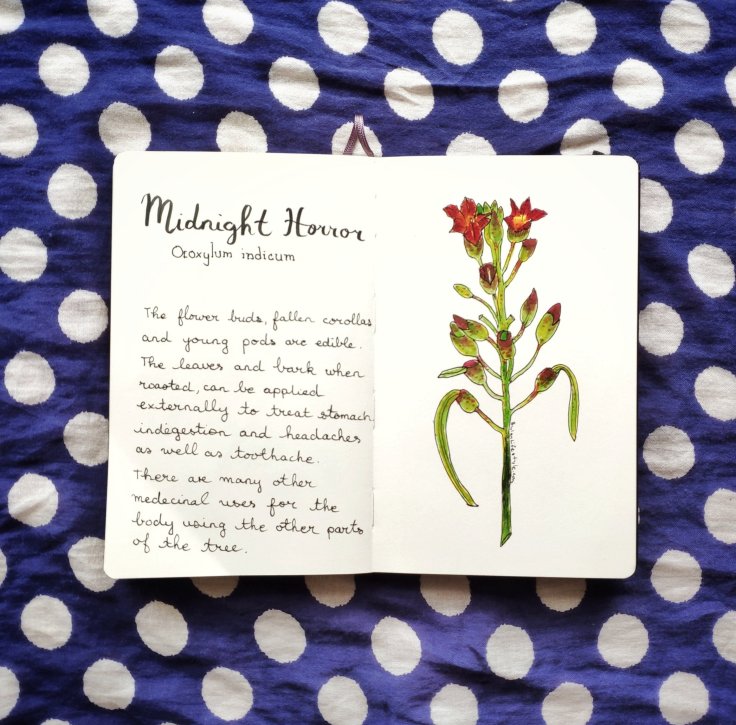 Midnight Horror
Oroxylum indicum
The flower buds, fallen corollas
and young pods are edible.
The leaves and bark when
roasted, can be applied
externally to treat stomach
indigestion and headaches
as well as toothache.
There are many other
medecinal uses for the
body using the other parts
of the tree.